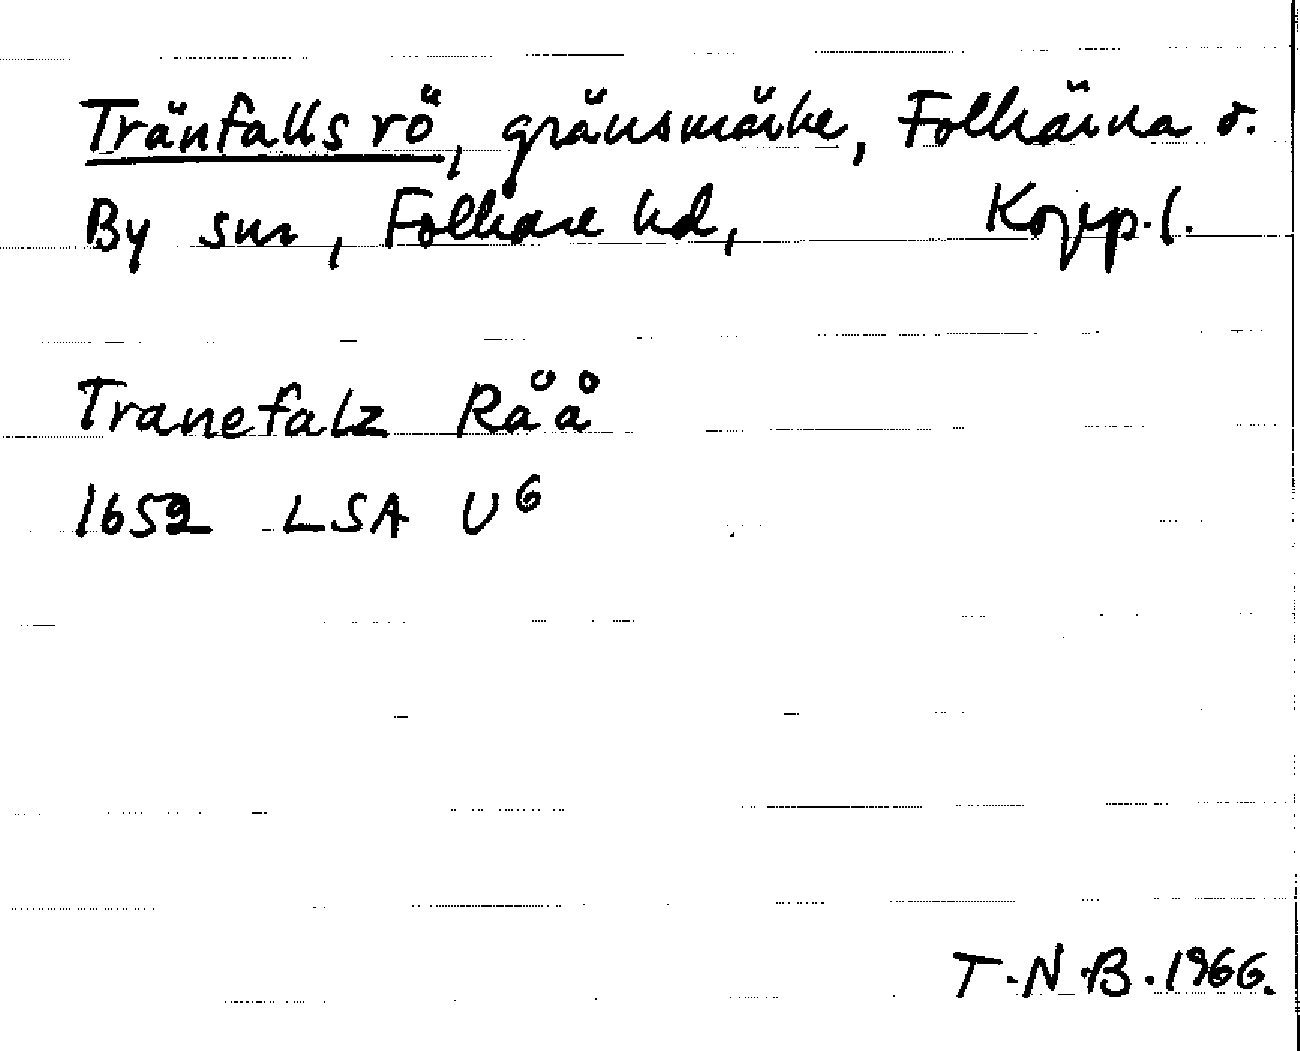 Tränfallsrö, gränsmärke, Folkärna o.
By snr, Folkare hd, Kopp. l.
Tranefalz Råå
1652 LSA U⁶
T.N.B. 1966.